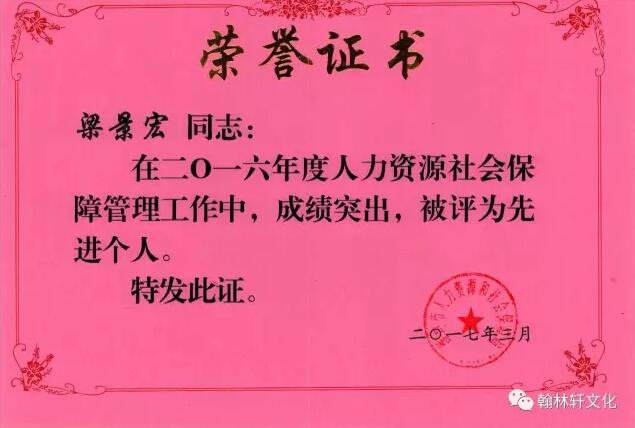 荣誉证书
梁景宏 同志：
在二〇一六年度人力资源社会保
障管理工作中，成绩突出，被评为先
进个人。
特发此证。
二〇一七年三月
翰林轩文化